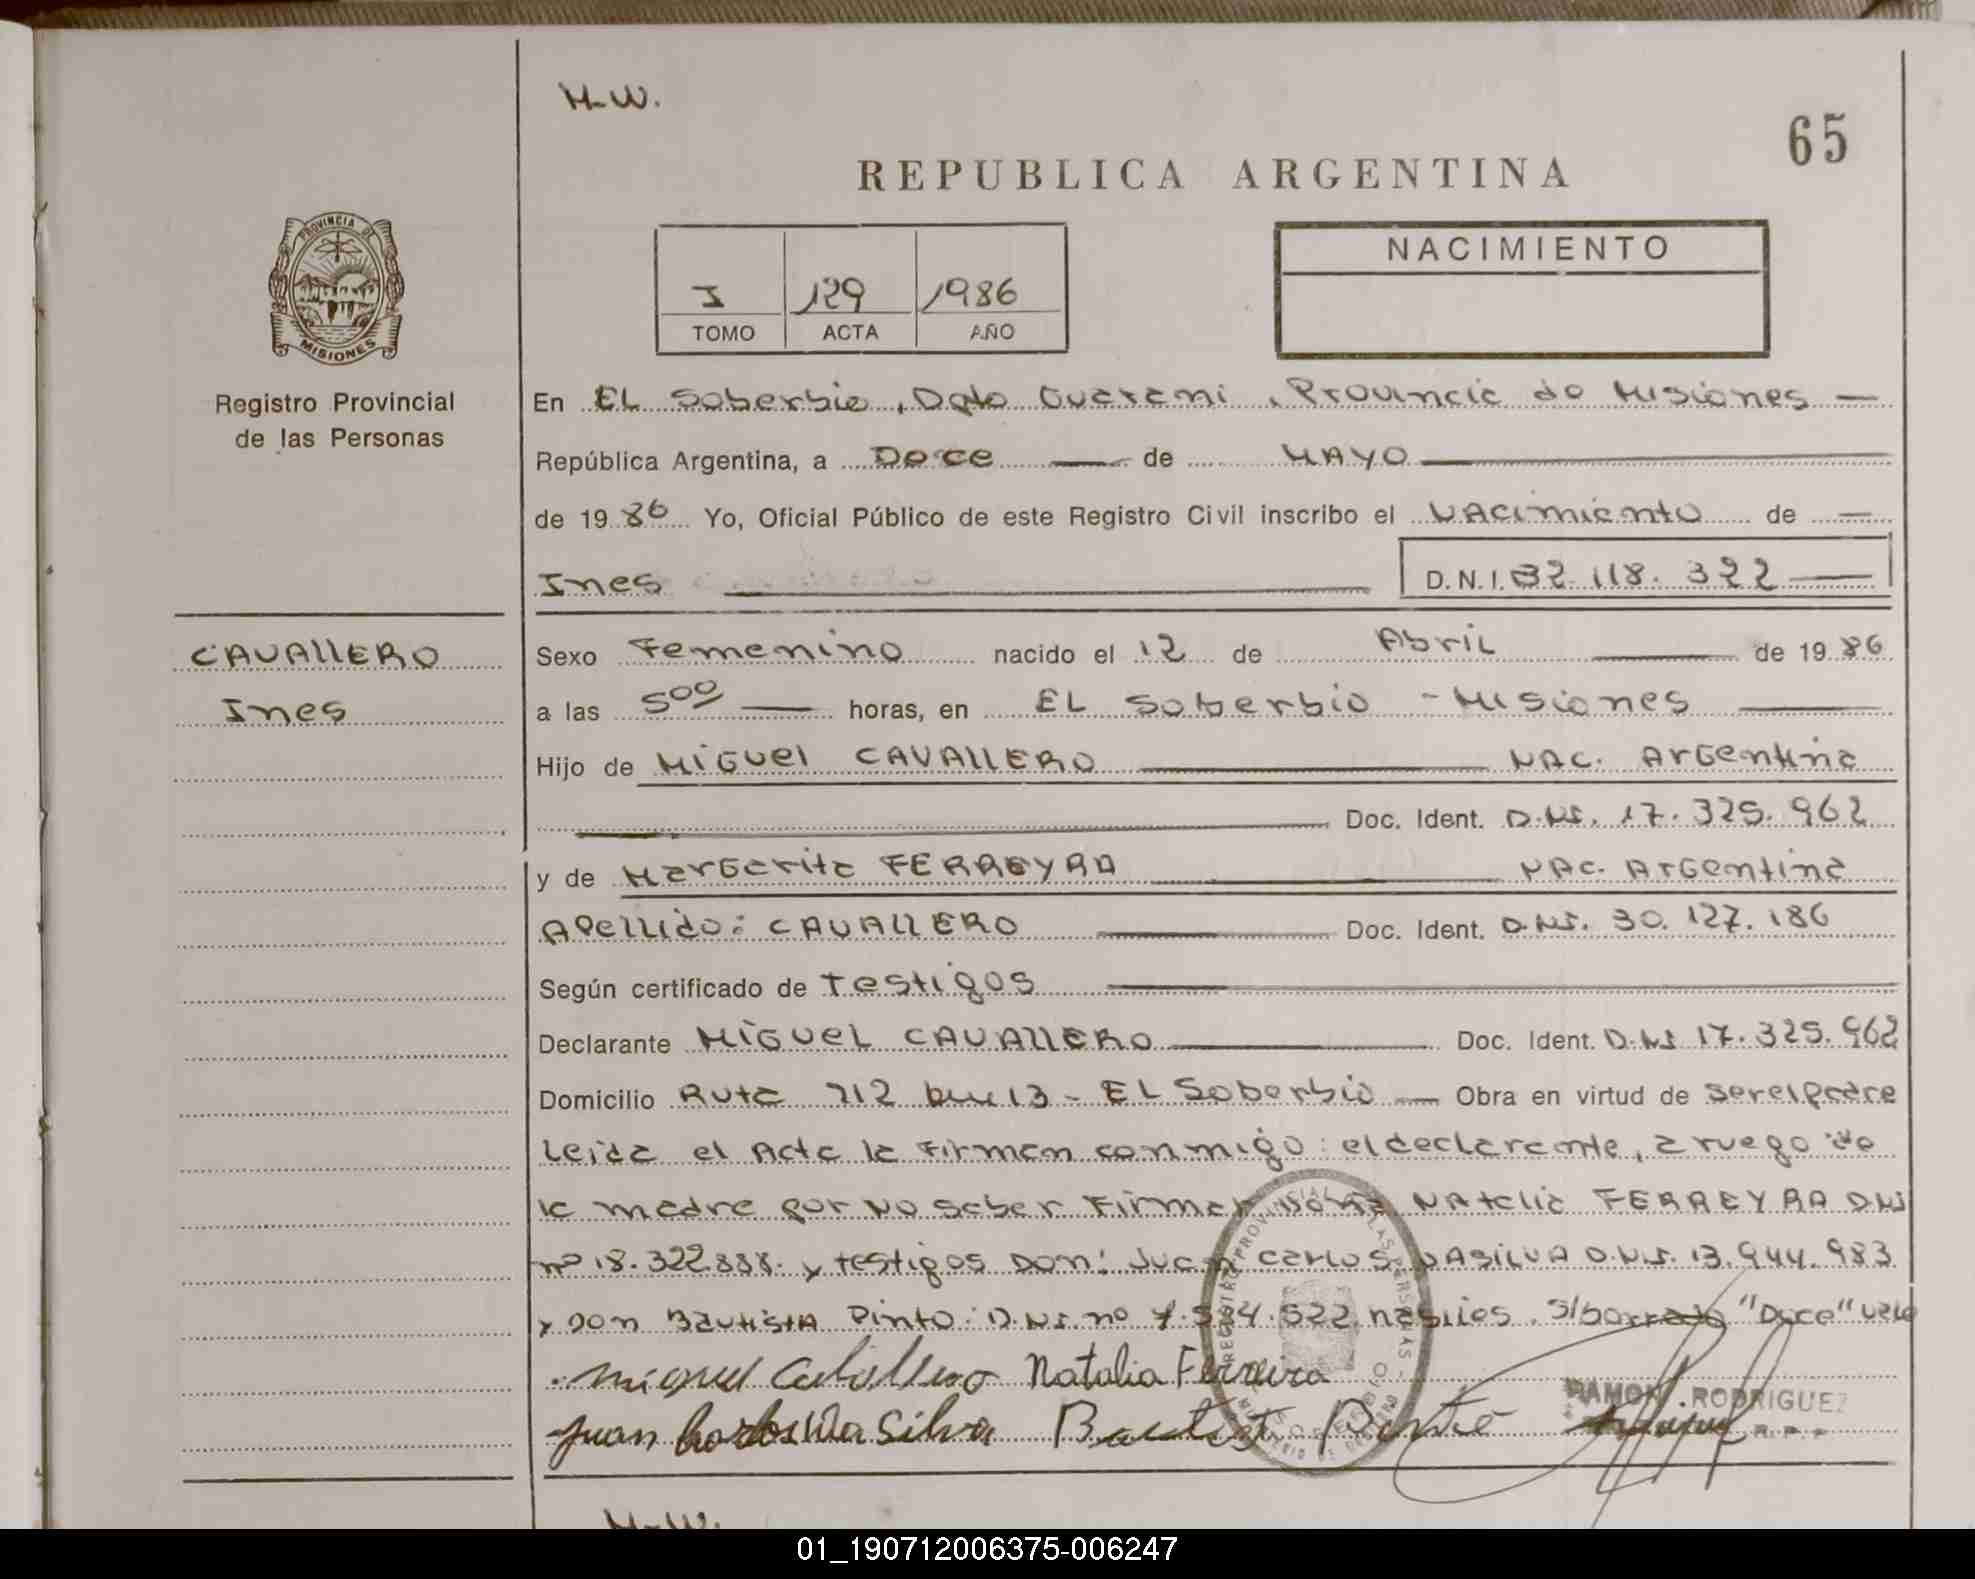 H-W.
65
REPUBLICA ARGENTINA
PROVINCIA DE
MISIONES
Registro Provincial
de las Personas
I 129 1986
TOMO ACTA AÑO
NACIMIENTO
En EL Soberbio, Dpto Guarani, Provincia de Misiones —
República Argentina, a Doce — de MAYO —
de 1986 Yo, Oficial Público de este Registro Civil inscribo el Nacimiento de —
Ines — D.N.I. 32.118.322 —
CAVALLERO
Ines
Sexo Femenino nacido el 12 de Abril — de 1986
a las 5⁰⁰ — horas, en EL Soberbio - Misiones —
Hijo de Miguel CAVALLERO — NAC. Argentina
— Doc. Ident. D.NI. 17.325.962
y de Margarita FERREYRA — NAC. Argentina
Apellido: CAVALLERO — Doc. Ident. D.NI. 30.127.186
Según certificado de Testigos —
Declarante Miguel CAVALLERO — Doc. Ident. D.NI 17.325.962
Domicilio Ruta 212 km 13 - EL Soberbio — Obra en virtud de ser el padre
Leida el Acta la Firman conmigo: el declarante, a ruego de
la madre por no saber Firmar Doña Natalia FERREYRA DNI
nº 18.322.888. y testigos Don: Juan Carlos DASILVA D.NI. 13.944.983
y Don Bautista Pinto. D.NI. nº 7.544.522 habiles. S/borrado "Doce" Vale
Miguel Caballero Natalia Ferreira
Juan Carlos Da Silva Bautista Pinto
RAMON RODRIGUEZ
H-W.
01_190712006375-006247